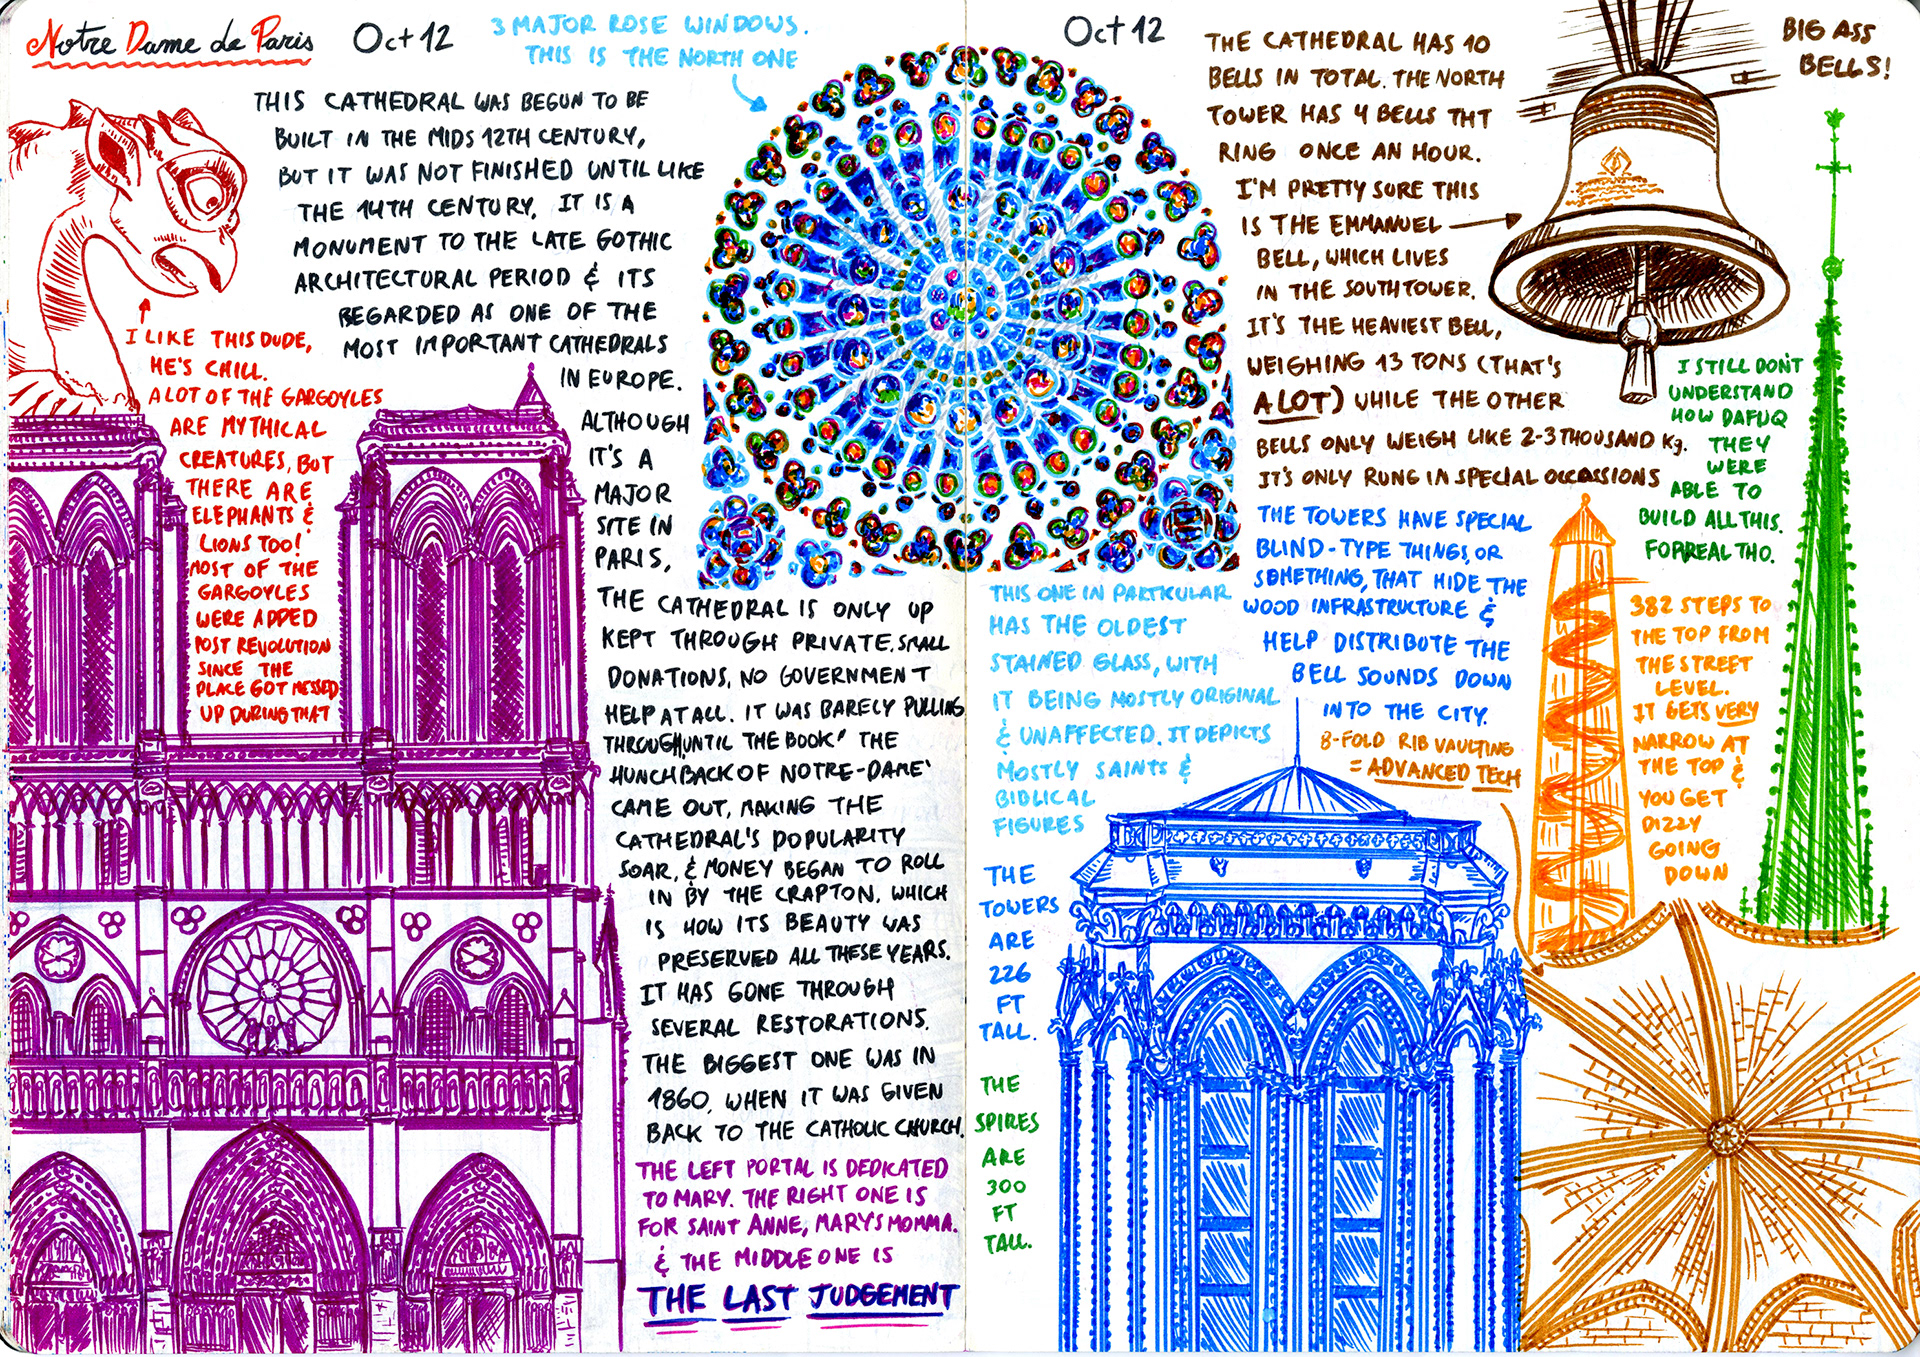 Notre Dame de Paris
Oct 12
3 MAJOR ROSE WINDOWS.
THIS IS THE NORTH ONE
THIS CATHEDRAL WAS BEGUN TO BE
BUILT IN THE MIDS 12TH CENTURY,
BUT IT WAS NOT FINISHED UNTIL LIKE
THE 14TH CENTURY. IT IS A
MONUMENT TO THE LATE GOTHIC
ARCHITECTURAL PERIOD & ITS
REGARDED AS ONE OF THE
MOST IMPORTANT CATHEDRALS
IN EUROPE.
ALTHOUGH
IT'S A
MAJOR
SITE IN
PARIS,
THE CATHEDRAL IS ONLY UP
KEPT THROUGH PRIVATE, SMALL
DONATIONS, NO GOVERNMENT
HELP AT ALL. IT WAS BARELY PULLING
THROUGH, UNTIL THE BOOK "THE
HUNCHBACK OF NOTRE-DAME"
CAME OUT, MAKING THE
CATHEDRAL'S POPULARITY
SOAR, & MONEY BEGAN TO ROLL
IN BY THE CRAPTON, WHICH
IS HOW ITS BEAUTY WAS
PRESERVED ALL THESE YEARS.
IT HAS GONE THROUGH
SEVERAL RESTORATIONS.
THE BIGGEST ONE WAS IN
1860, WHEN IT WAS GIVEN
BACK TO THE CATHOLIC CHURCH.
THE LEFT PORTAL IS DEDICATED
TO MARY. THE RIGHT ONE IS
FOR SAINT ANNE, MARY'S MOMMA.
& THE MIDDLE ONE IS
THE LAST JUDGEMENT
I LIKE THIS DUDE,
HE'S CHILL.
A LOT OF THE GARGOYLES
ARE MYTHICAL
CREATURES, BUT
THERE ARE
ELEPHANTS &
LIONS TOO!
MOST OF THE
GARGOYLES
WERE ADDED
POST REVOLUTION
SINCE THE
PLACE GOT MESSED
UP DURING THAT
Oct 12
THE CATHEDRAL HAS 10
BELLS IN TOTAL. THE NORTH
TOWER HAS 4 BELLS THT
RING ONCE AN HOUR.
I'M PRETTY SURE THIS
IS THE EMMANUEL
BELL, WHICH LIVES
IN THE SOUTH TOWER.
IT'S THE HEAVIEST BELL,
WEIGHING 13 TONS (THAT'S
A LOT) WHILE THE OTHER
BELLS ONLY WEIGH LIKE 2-3 THOUSAND Kg.
IT'S ONLY RUNG IN SPECIAL OCCASSIONS
BIG ASS
BELLS!
I STILL DON'T
UNDERSTAND
HOW DAFUQ
THEY
WERE
ABLE TO
BUILD ALL THIS.
FORREAL THO.
THE TOWERS HAVE SPECIAL
BLIND-TYPE THINGS, OR
SOMETHING, THAT HIDE THE
WOOD INFRASTRUCTURE &
HELP DISTRIBUTE THE
BELL SOUNDS DOWN
INTO THE CITY.
8-FOLD RIB VAULTING
= ADVANCED TECH
382 STEPS TO
THE TOP FROM
THE STREET
LEVEL.
IT GETS VERY
NARROW AT
THE TOP &
YOU GET
DIZZY
GOING
DOWN
THIS ONE IN PARTICULAR
HAS THE OLDEST
STAINED GLASS, WITH
IT BEING MOSTLY ORIGINAL
& UNAFFECTED. IT DEPICTS
MOSTLY SAINTS &
BIBLICAL
FIGURES
THE
TOWERS
ARE
226
FT
TALL.
THE
SPIRES
ARE
300
FT
TALL.